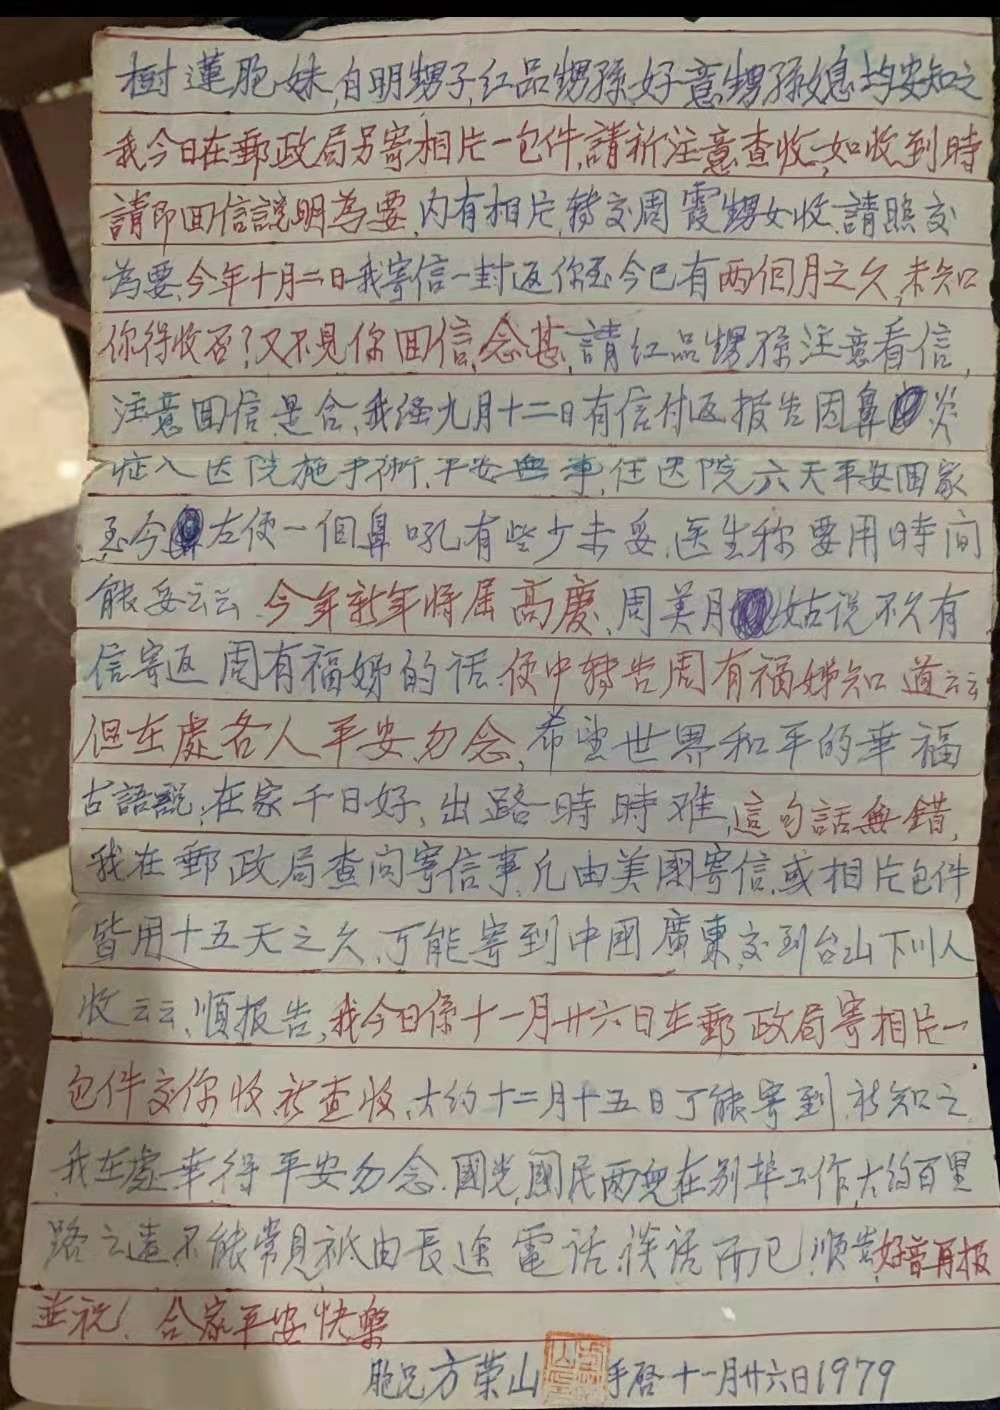 樹蓮胞妹,自明甥子,红品甥孫,好意甥孫媳均安知之
我今日在郵政局另寄相片一包件,請祈注意查收,如收到時
請即回信說明為要,内有相片,轉交周霞甥女收,請照交
為要,今年十月二日我寄信一封返你至今已有两個月之久,未知
你得收否?又不見你回信,念甚,請红品甥孫注意看信,
注意回信是合,我經九月十二日有信付返报告因鼻炎
症入医院施手術,平安無事,住医院六天平安回家
至今左便一個鼻吼有些少未妥,医生称要用時间
能妥云云,今年新年将届高慶,周美月姑说不久有
信寄返周有福娣的话,便中轉告周有福娣知道云云
但在處各人平安勿念,希望世界和平的幸福
古語説,在家千日好,出路一時時难,這句話無錯,
我在郵政局查问寄信事,凡由美國寄信,或相片包件
皆用十五天之久,可能寄到中國廣東,交到台山下川人
收云云,順报告,我今日係十一月廿六日在郵政局寄相片一
包件交你收祈查收,大约十二月十五日可能寄到,祈知之
我在處幸得平安勿念,國光,國民两兜在别埠工作,大约百里
路之遠不能常見祇由長途電话,谈话而已,順告,好音再报
並祝!合家平安快樂
胞兄方荣山手啓十一月廿六日1979